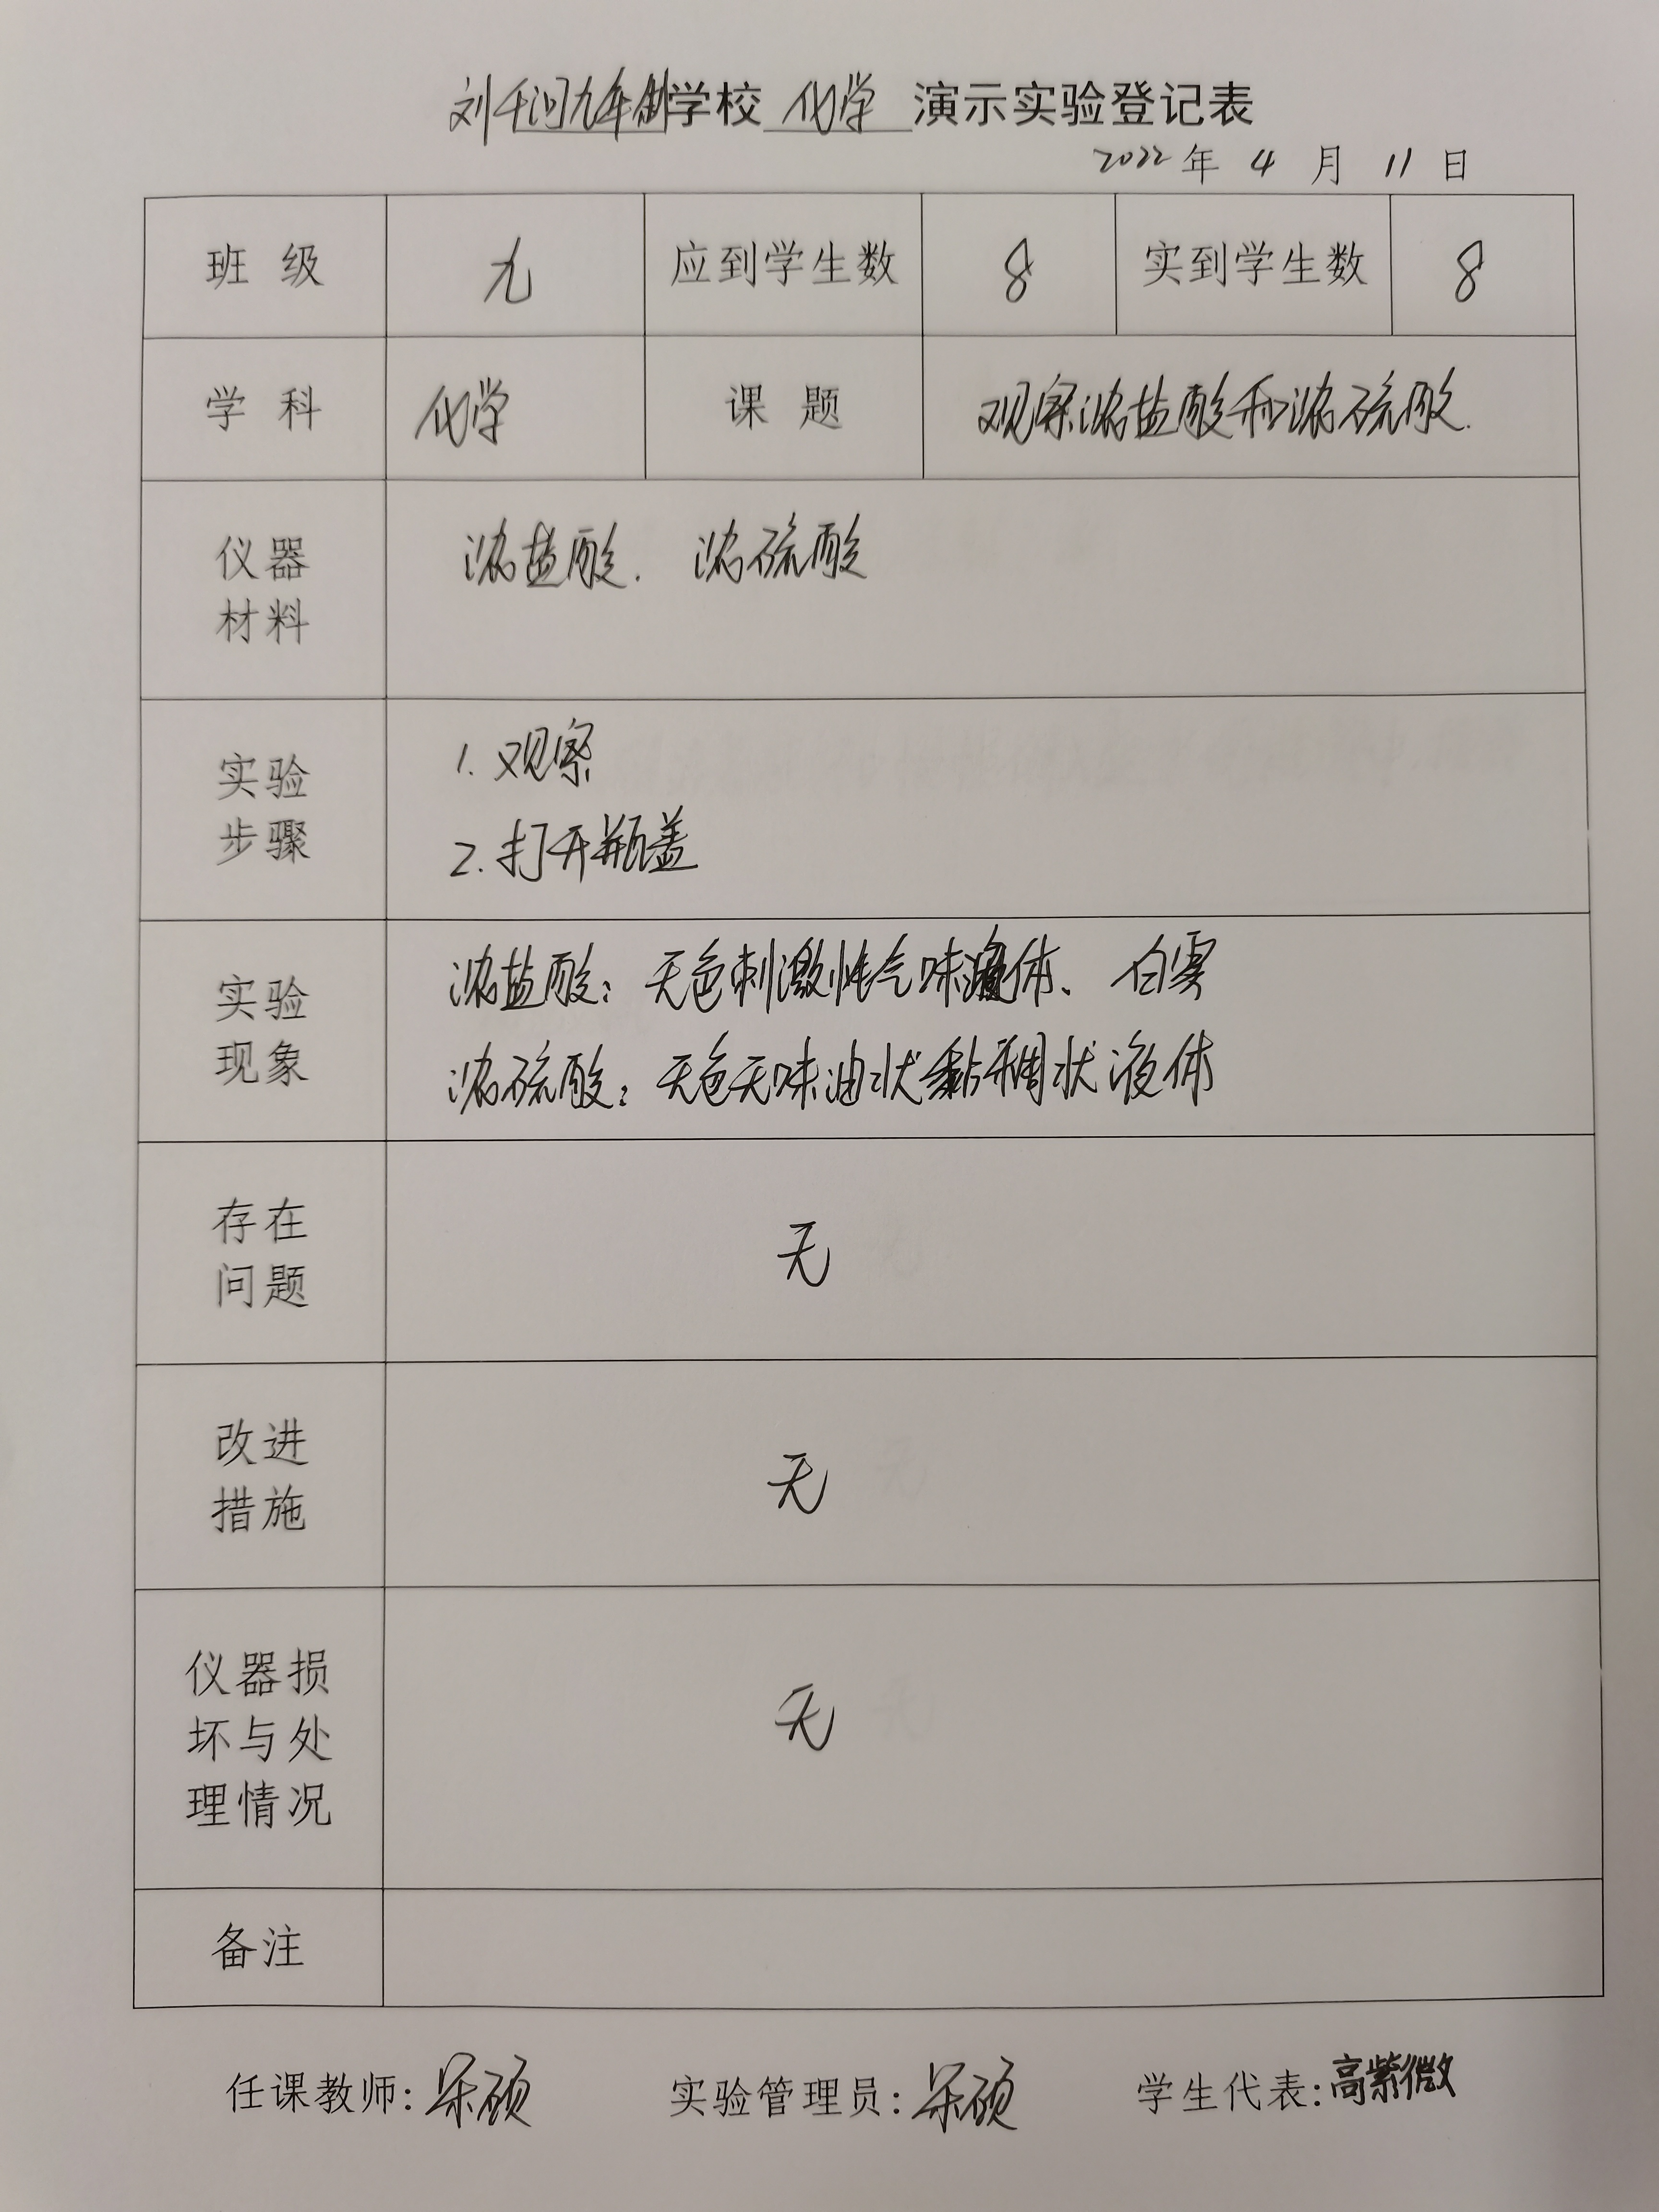 刘千河九年制学校 化学 演示实验登记表
2022 年 4 月 11 日
班 级 九 应到学生数 8 实到学生数 8
学 科 化学 课 题 观察浓盐酸和浓硫酸.
仪器
材料
浓盐酸. 浓硫酸
实验
步骤
1. 观察
2. 打开瓶盖
实验
现象
浓盐酸: 无色刺激性气味液体、 白雾
浓硫酸: 无色无味油状黏稠状液体
存在
问题
无
改进
措施
无
仪器损
坏与处
理情况
无
备注
任课教师: 硕 实验管理员: 硕 学生代表: 高紫微